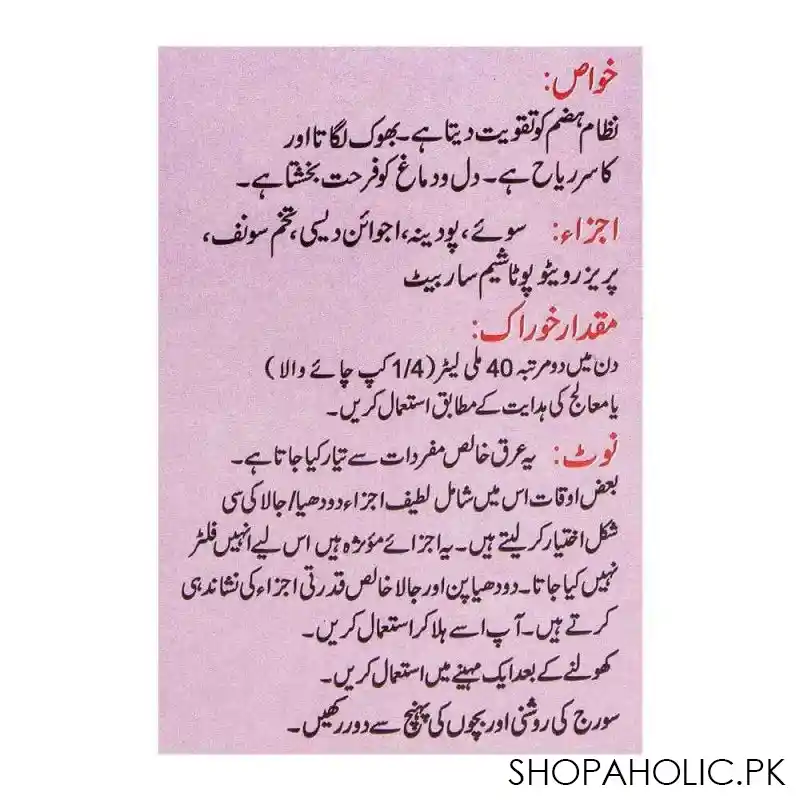 خواص:
نظام ہضم کو تقویت دیتا ہے۔ بھوک لگاتا اور
کاسر ریاح ہے۔ دل و دماغ کو فرحت بخشتا ہے۔
اجزاء: سوئے، پودینہ، اجوائن دیسی، تخم سونف،
پریزرویٹو پوٹاشیم ساربیٹ
مقدار خوراک:
دن میں دو مرتبہ 40 ملی لیٹر (1/4 کپ چائے والا)
یا معالج کی ہدایت کے مطابق استعمال کریں۔
نوٹ: یہ عرق خالص مفردات سے تیار کیا جاتا ہے۔
بعض اوقات اس میں شامل لطیف اجزاء دودھیا/جالا کی سی
شکل اختیار کر لیتے ہیں۔ یہ اجزائے مؤثرہ ہیں اس لیے انہیں فلٹر
نہیں کیا جاتا۔ دودھیا پن اور جالا خالص قدرتی اجزاء کی نشاندہی
کرتے ہیں۔ آپ اسے ہلا کر استعمال کریں۔
کھولنے کے بعد ایک مہینے میں استعمال کریں۔
سورج کی روشنی اور بچوں کی پہنچ سے دور رکھیں۔
SHOPAHOLIC.PK